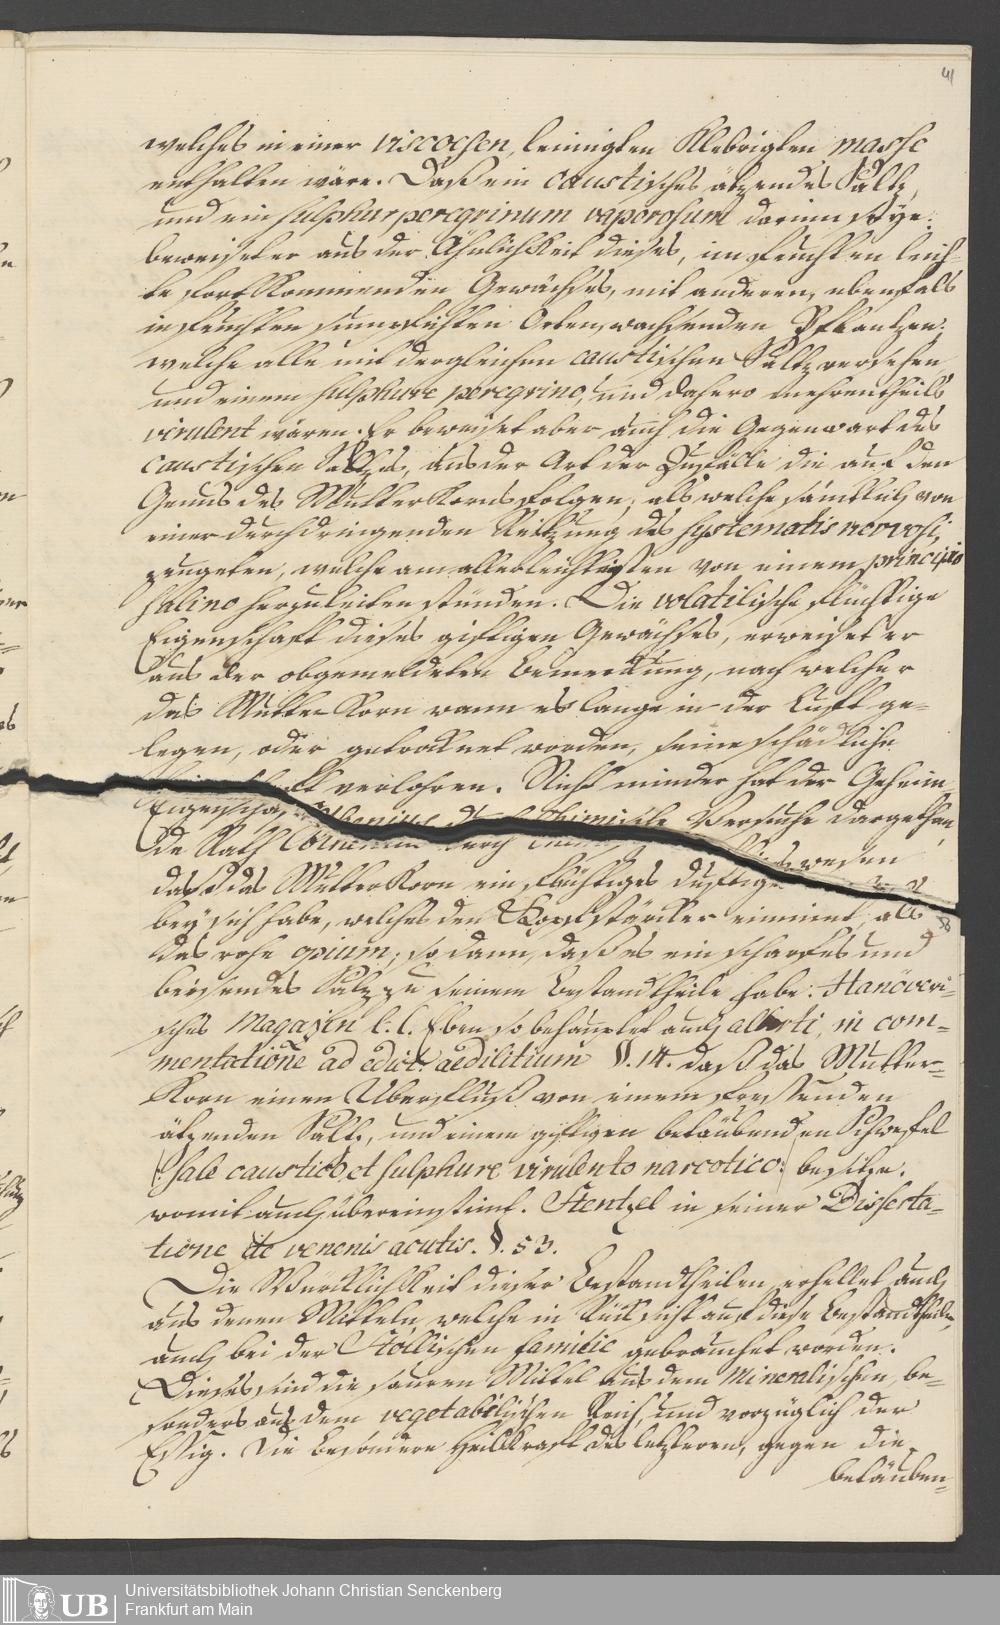 41
welches in einer viscoesen, leimigten Klebrigten masse
enthalten wäre. Daß ein caustisches ätzendes Saltz,
und ein sulphur peregrinum vaporosum darinn seye:
beweiset er aus der Ähnlichkeit dieses, im feuchten leich-
te fortkommenden Gewächses, mit anderen, ebenfals
in feuchten sumpfichten Orten wachsenden Pflantzen;
welche alle mit dergleichen caustischen Saltz versehen
und einem sulphure peregrino, und dahero mehrentheils
virulent wären. Er beweiset aber auch die Gegenwart des
caustischen Saltzes, aus der Art der Zufälle die auf den
Genuß des Mutterkorns folgen, als welche sämtlich von
einer durchdringenden Reitzung des systematis nervosi,
zeugeten, welche am allerleichtesten von einem principio
salino herzuleiten stünden. Die volatilische flüchtige
Eigenschaft dieses giftigen Gewächses, erweiset er
aus der obgemeldeten Bemerckung, nach welcher
das Mutter Korn wann es lange in der Luft ge-
legen, oder getrocknet worden, seine schädliche
Eigenschaft verlohren. Nicht minder hat der Geheim-
de Rath durch Chimische Versuche dargethan,
daß das Mutter Korn ein flüchtiges duftiges wesen
bey sich habe, welches den Kopf stärcker einnimt, als
das rohe opium; so dann, daß es ein scharfes und
beisendes Saltz zu seinem Bestandtheile habe. Hanöveri-
sches Magazin l. c. Eben so behauptet auch alberti, in com-
mentatione ad edict. aedilitium §. 14. daß das Mutter-
Korn einen Uberfluß von einem fressenden
ätzenden Saltz, und einem giftigen betäubenden Schwefel
(: sale caustico, et sulphure virulento narcotico:) besitze.
womit auch übereinstimt. Stentzel in seiner Disserta-
tione de venenis acutis. §. 53.
Die Würcklichkeit dieser Bestandtheilen, erhellet auch
aus denen Mitteln, welche in Rücksicht auf diese Bestandtheile,
auch bei der Stollischen familie gebrauchet worden.
Dieses sind die sauren Mittel aus dem Mineralischen, be-
sonders aus dem vegetabilischen Reich, und vorzüglich der
Essig. Die besondere Heilkraft des letzteren, gegen die
betäuben-
UB
Universitätsbibliothek Johann Christian Senckenberg
Frankfurt am Main